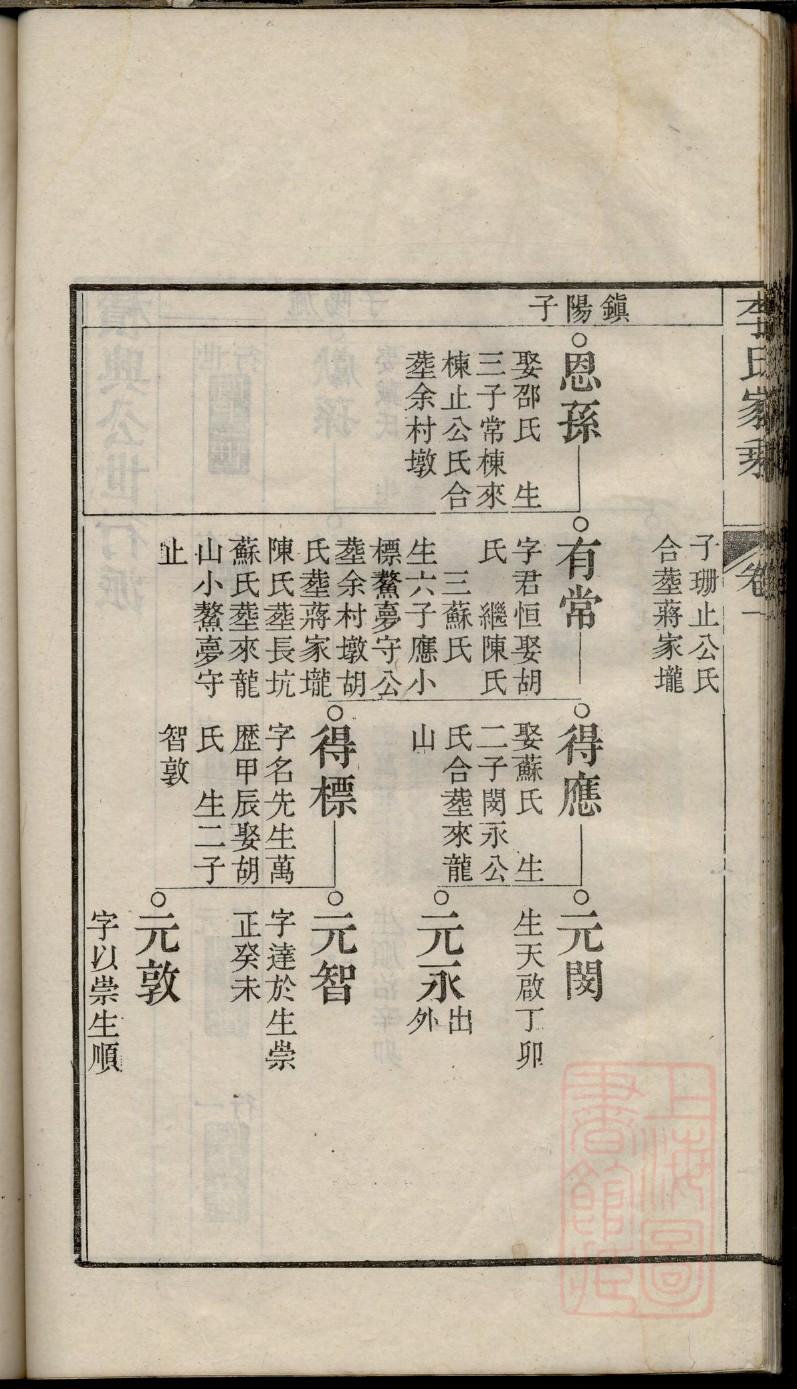 李氏家乘
卷一
子珊止公氏
合塟蔣家壠
鎭陽子
恩孫
娶邵氏　生
三子常棟來
棟止公氏合
塟余村墩
有常
字君恒娶胡
氏　繼陳氏
三蘇氏
生六子應小
標鰲夢守公
塟余村墩胡
氏塟蔣家壠
陳氏塟長坑
蘇氏塟來龍
山小鰲夢守
止
得應
娶蘇氏　生
二子閔永公
氏合塟來龍
山
得標
字名先生萬
歷甲辰娶胡
氏　生二子
智敦
元閔
生天啟丁卯
元永
出
外
元智
字達於生崇
正癸未
元敦
字以崇生順
上海圖
書館藏